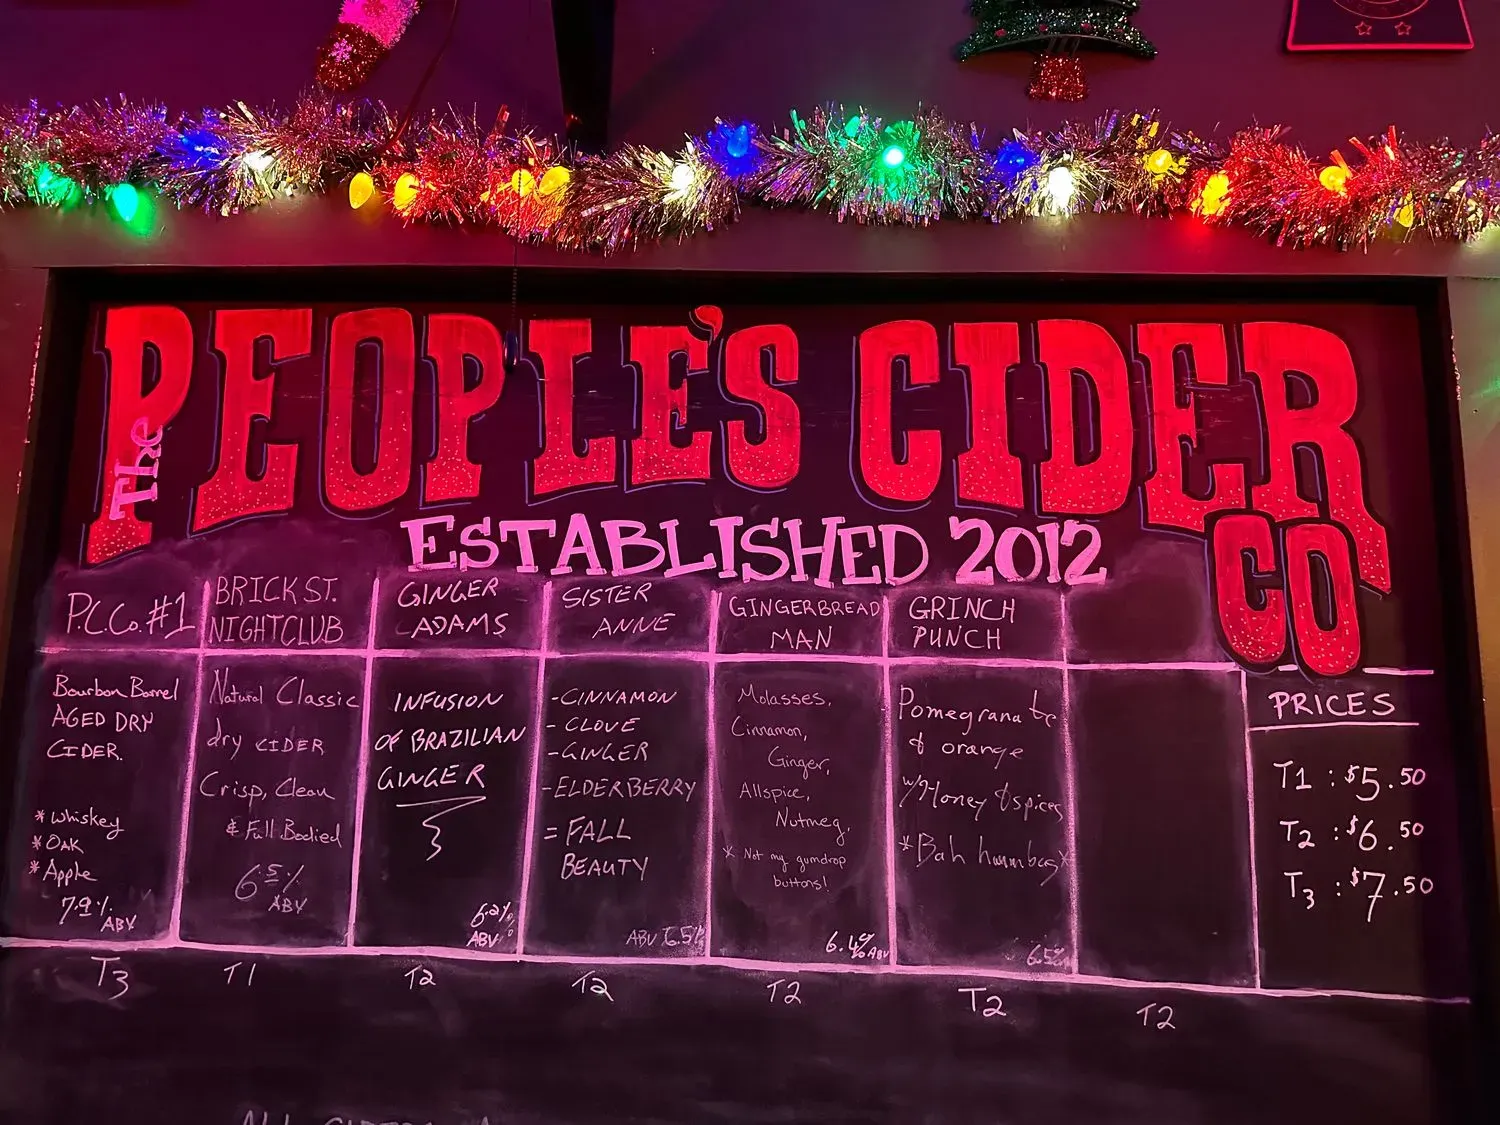 The PEOPLE'S CIDER CO
ESTABLISHED 2012
P.C.Co. #1
Bourbon Barrel
AGED DRY
CIDER.
* Whiskey
* OAK
* Apple
7.9% ABV
T3
BRICK ST.
NIGHTCLUB
Natural Classic
dry CIDER
Crisp, Clean
& Full Bodied
6.5%
ABV
T1
GINGER
ADAMS
INFUSION
OF BRAZILIAN
GINGER
6.2%
ABV
T2
SISTER
ANNE
-CINNAMON
-CLOVE
-GINGER
-ELDERBERRY
= FALL
BEAUTY
ABV 6.5%
T2
GINGERBREAD
MAN
Molasses,
Cinnamon,
Ginger,
Allspice,
Nutmeg,
* Not my gumdrop
buttons!
6.4% ABV
T2
GRINCH
PUNCH
Pomegranate
& orange
w/ Honey & spices
*Bah humbug*
6.5%
T2
T2
PRICES
T1 : $5.50
T2 : $6.50
T3 : $7.50